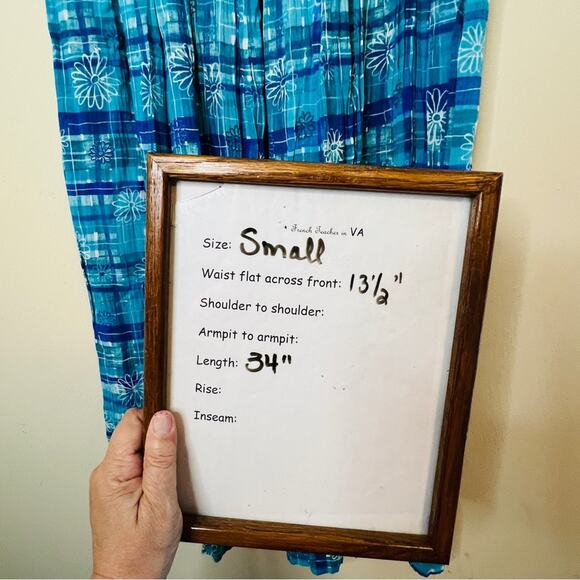 French Teacher in VA
Size: Small
Waist flat across front: 13 1/2"
Shoulder to shoulder:
Armpit to armpit:
Length: 34"
Rise:
Inseam: